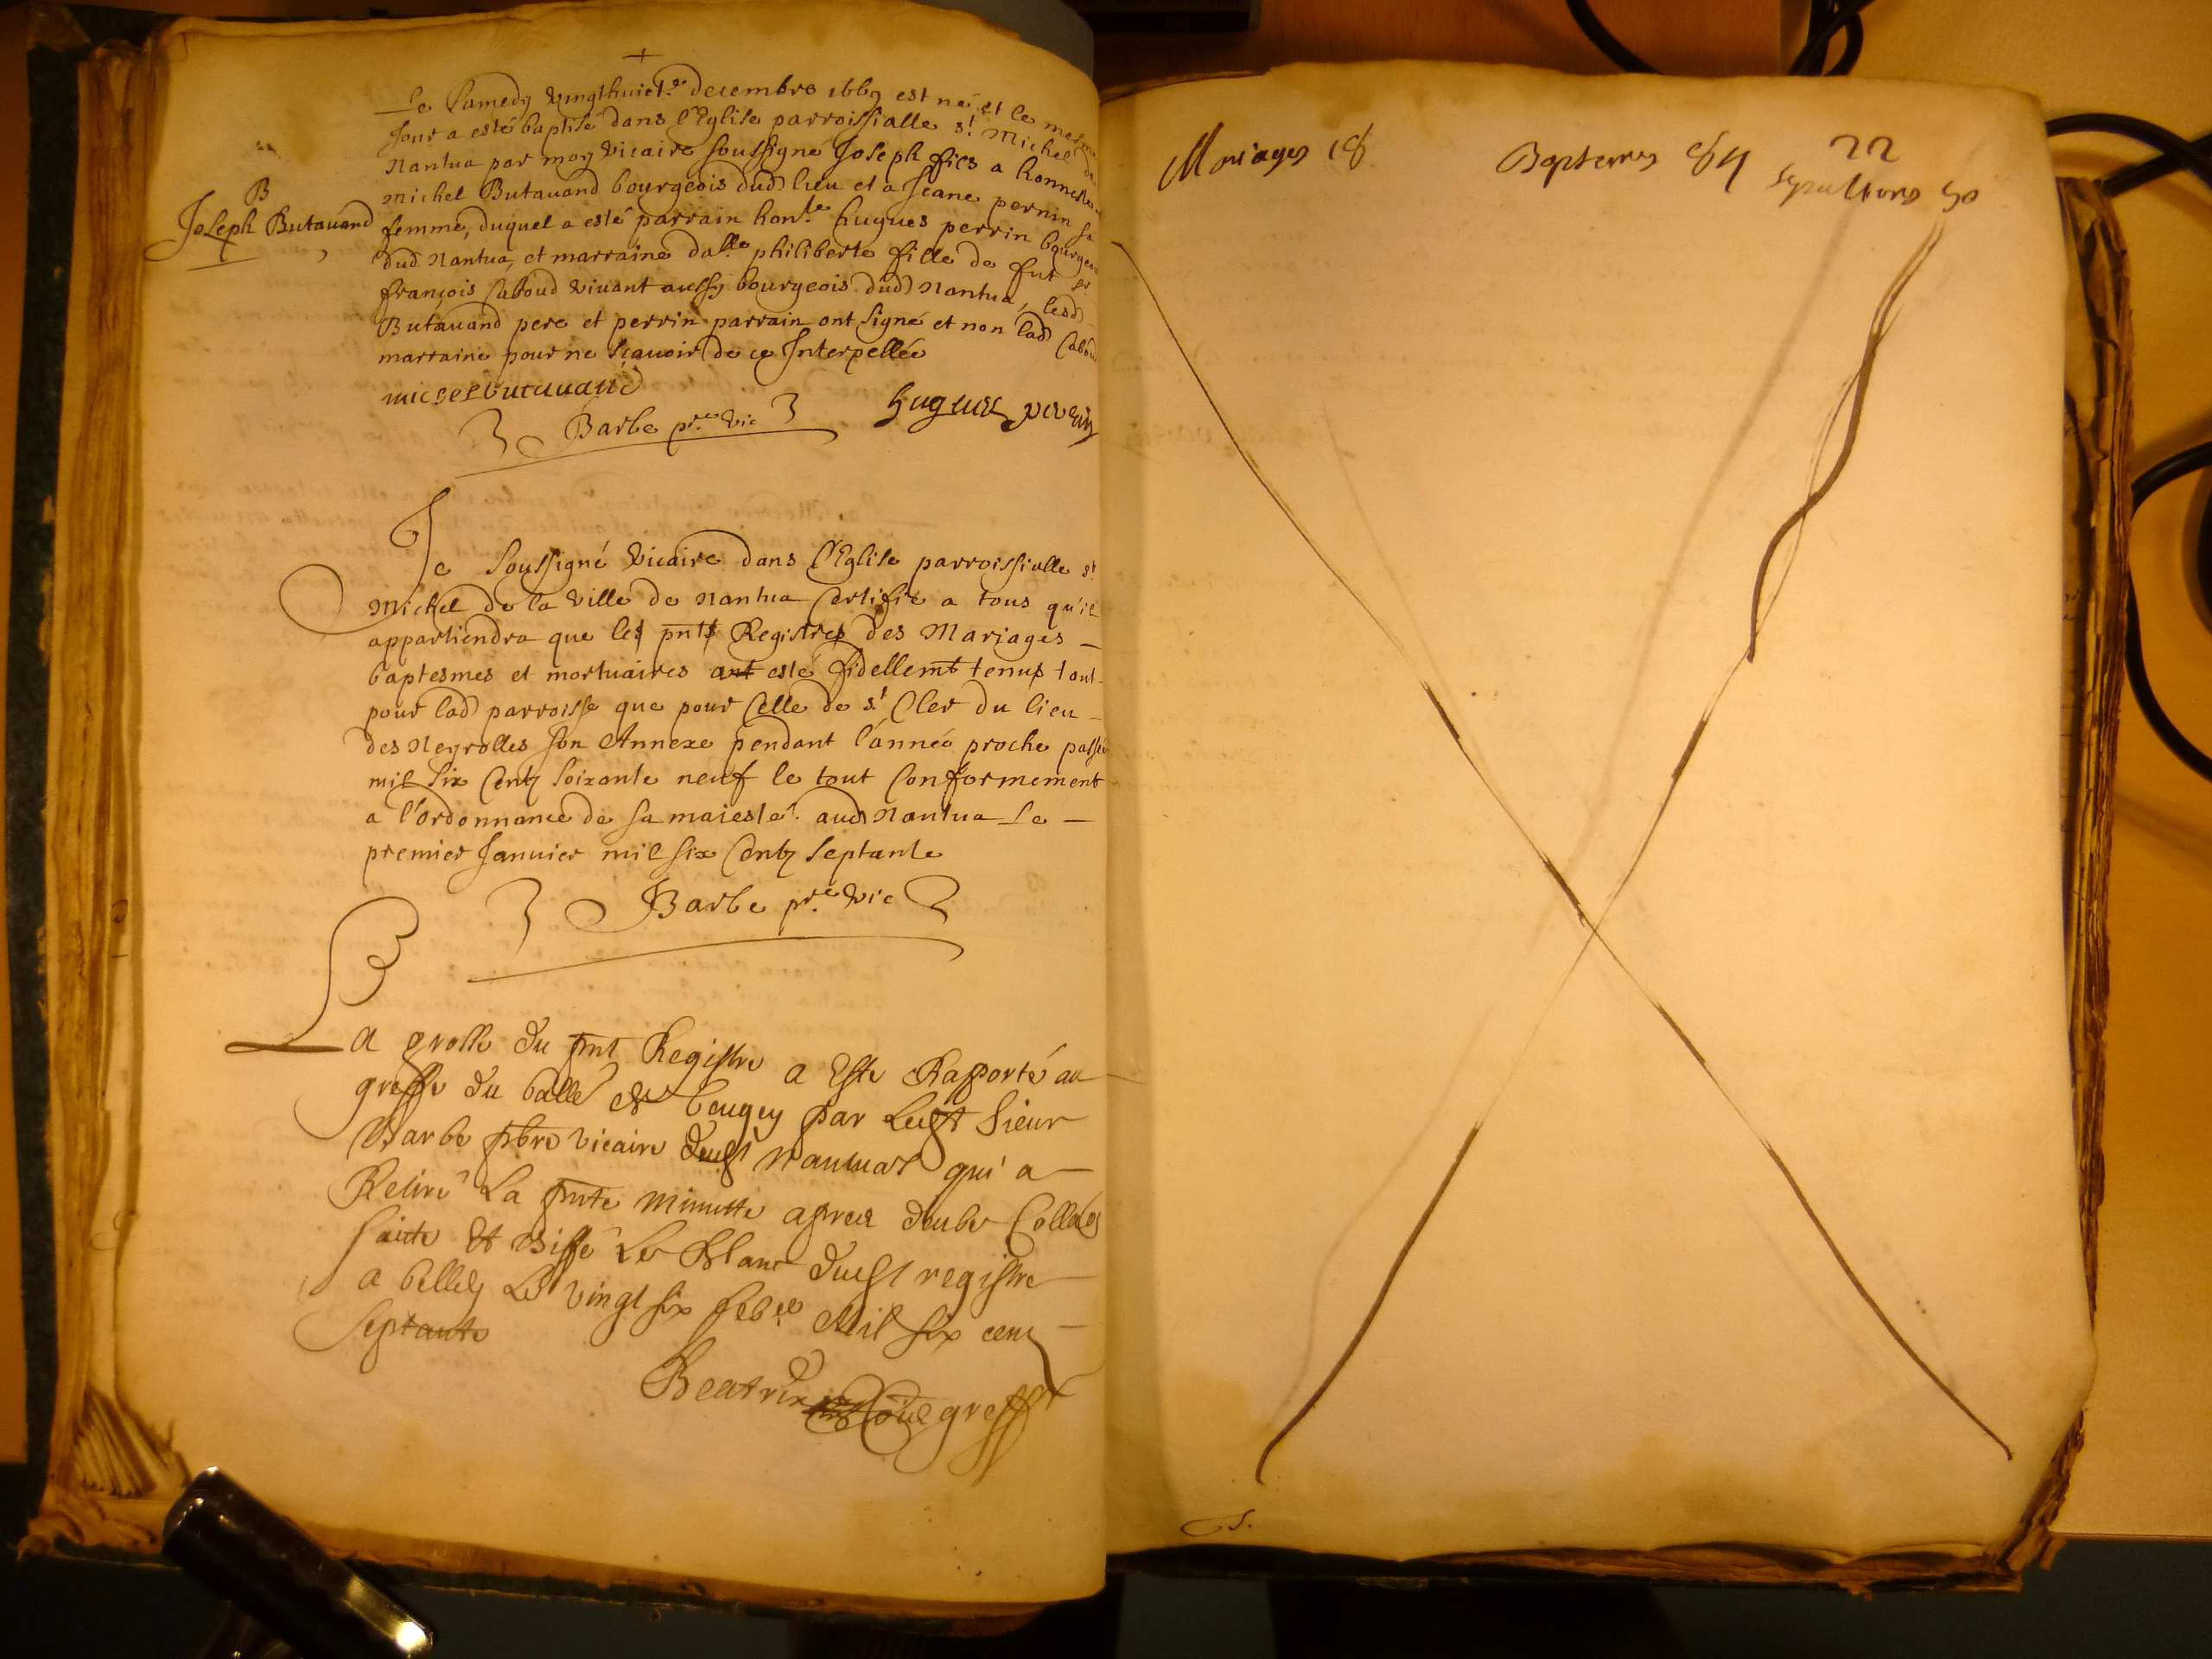 +
Le Samedy vingthuict.e decembre 1669 est né et le mesme
Jour a esté baptisé dans l'Eglise parroissialle s.t Michel de
Nantua par moy vicaire soussigné Joseph fils a honneste
Michel Butauand bourgeois dud lieu et a Jeane perrin sa
B
Joseph Butauand
femme, duquel a esté parrain hon.le hugues perrin bourgeois
dud Nantua, et marraine da.lle philiberte fille de fut sr
françois Caboud viuant aussy bourgeois dud Nantua, lesd
Butauand pere et perrin parrain ont signé et non lad Caboud
marraine pour ne sçauoir de ce Interpellée
michel butauand
hugues perrin
Barbe pr.e vic
Je soussigné vicaire dans l'Eglise parroissialle st
Michel de la ville de Nantua Certifie a tous qu'il
appartiendra que les pnts Registres des Mariages
baptesmes et mortuaires ont esté fidellemt tenus tant
pour lad parroisse que pour Celle de s.t Cler du lieu
des Neyrolles son Annexe pendant l'année proche passée
mil six Centz soixante neuf le tout Conformement
a l'ordonnance de sa maiesté. aud Nantua Le
premier Januier mil six Centz septante
Barbe pr.e vic
La grosse du pnt Registre a Esté Raporté au
greffe du balle de beugey par Ledt sieur
Barbe pbre vicaire dudt Nantuas qui a
Retiré La pnte minutte apres deube
faicte Et Biffé Le Blanc dudt registre
a belley Le vingt six feb.er Mil six cent
septante
Beatrix greff
Mariages 18
Baptemes 89
22
sepultures 50